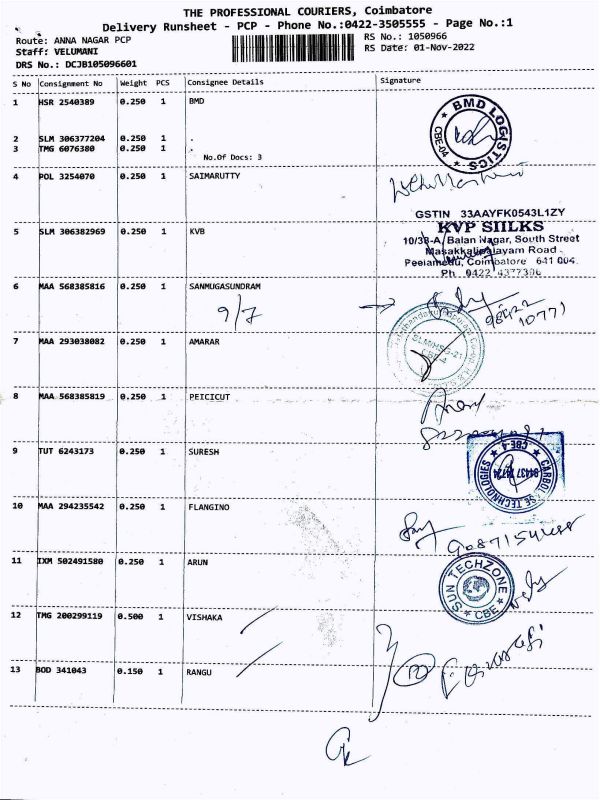 THE PROFESSIONAL COURIERS, Coimbatore
Delivery Runsheet - PCP - Phone No.:0422-3505555 - Page No.:1
Route: ANNA NAGAR PCP
RS No.: 1050966
Staff: VELUMANI
RS Date: 01-Nov-2022
DRS No.: DCJB105096601
S No Consignment No Weight PCS Consignee Details Signature
1 HSR 2540389 0.250 1 BMD
BMD LOGISTICS
CBE-04
2 SLM 306377204 0.250 1 .
3 TMG 6076380 0.250 1 .
No.Of Docs: 3
4 POL 3254070 0.250 1 SAIMARUTTY
GSTIN 33AAYFK0543L1ZY
5 SLM 306382969 0.250 1 KVB
KVP SIILKS
10/38-A, Balan Nagar, South Street
Masakkalipalayam Road
Peelamedu, Coimbatore 641 004.
Ph 0422 4377306
6 MAA 568385816 0.250 1 SANMUGASUNDRAM
9/7
98422
10771
7 MAA 293038082 0.250 1 AMARAR
CBE-4
8 MAA 568385819 0.250 1 PEICICUT
9 TUT 6243173 0.250 1 SURESH
TECHNOLOGIES
CBE-4
10 MAA 294235542 0.250 1 FLANGINO
11 IXM 502491580 0.250 1 ARUN
SUN TECHZONE
CBE
12 TMG 200299119 0.500 1 VISHAKA
13 BOD 341043 0.150 1 RANGU